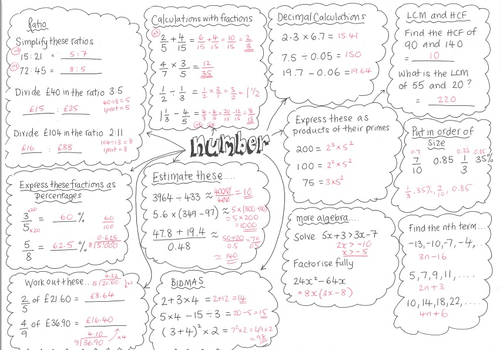 Ratio
Simplify these ratios
15:21 = 5:7
72:45 = 8:5
Divide £40 in the ratio 3:5
£15 : £25
Divide £104 in the ratio 2:11
£16 : £88
104÷13=8
1 part=8
Calculations with fractions
2/5 + 4/15 = 6/15 + 4/15 = 10/15 = 2/3
4/7 × 3/5 = 12/35
1/2 ÷ 1/3
Decimal Calculations
2.3 × 6.7 = 15.41
7.5 ÷ 0.05 = 150
19.7 - 0.06 = 19.64
LCM and HCF
Find the HCF of
90 and 140
10
What is the LCM
of 55 and 20?
220
number
Express these as
products of their primes
200 = 2³×5²
100 = 2²×5²
75 = 3×5²
Put in order of
size
7/10 0.85 1/3 35%
1/3, 35%, 7/10, 0.85
Express these fractions as
percentages
3/5 = 60%
60/100
5/8 = 62.5%
Estimate these....
3964 ÷ 433 ≈ 4000/400 = 10
5.6 × (349-97)
≈ 5×200
1000
47.8 + 19.4 / 0.48
140
more algebra....
Solve 5x+3>3x-7
2x>-10
x>-5
Factorise fully
24x² - 64x
= 8x(3x-8)
Find the nth term....
-13, -10, -7, -4, ...
3n-16
5, 7, 9, 11, ....
2n+3
10, 14, 18, 22, ....
4n+6
Work out these...
2/5 of £21.60 = £8.64
4/9 of £36.90 = £16.40
BIDMAS
2+3×4 = 2+12=14
5×4-15÷3 = 20-5=15
(3+4)²×2 = 7²×2=49×2
=98